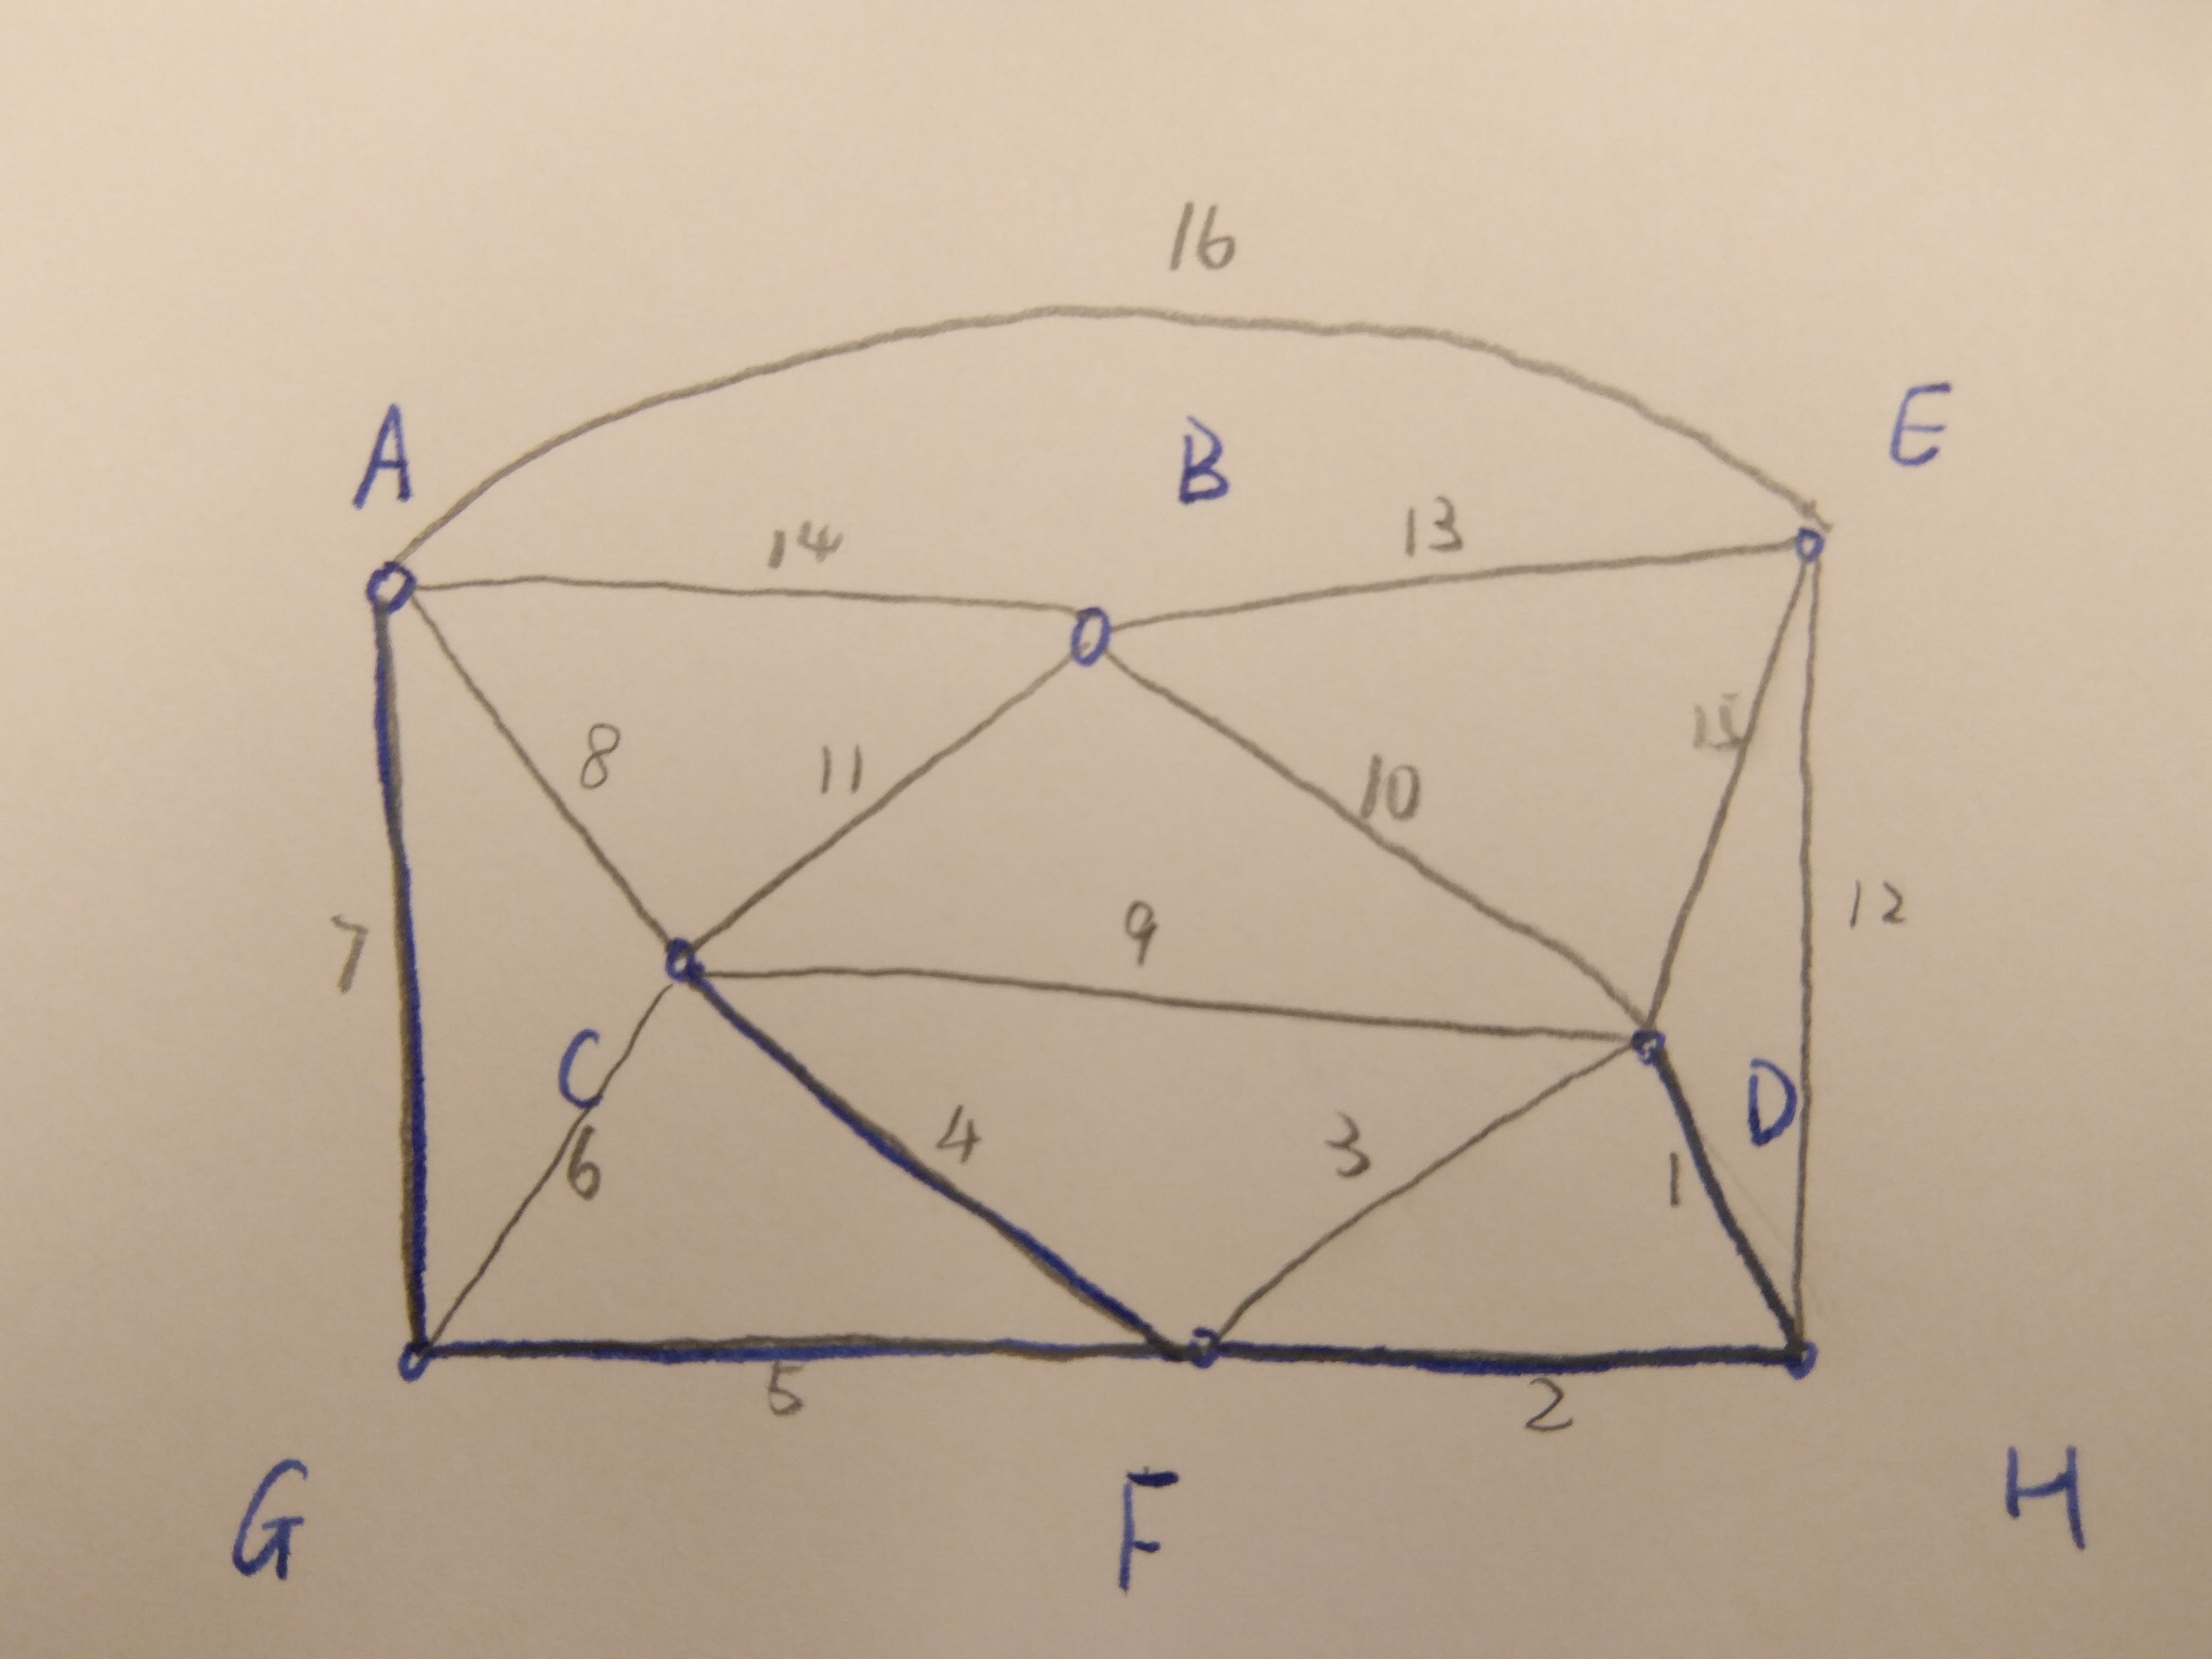 16
A B E
14 13
8 11 10 15
7 9 12
C D
6 4 3 1
5 2
G F H